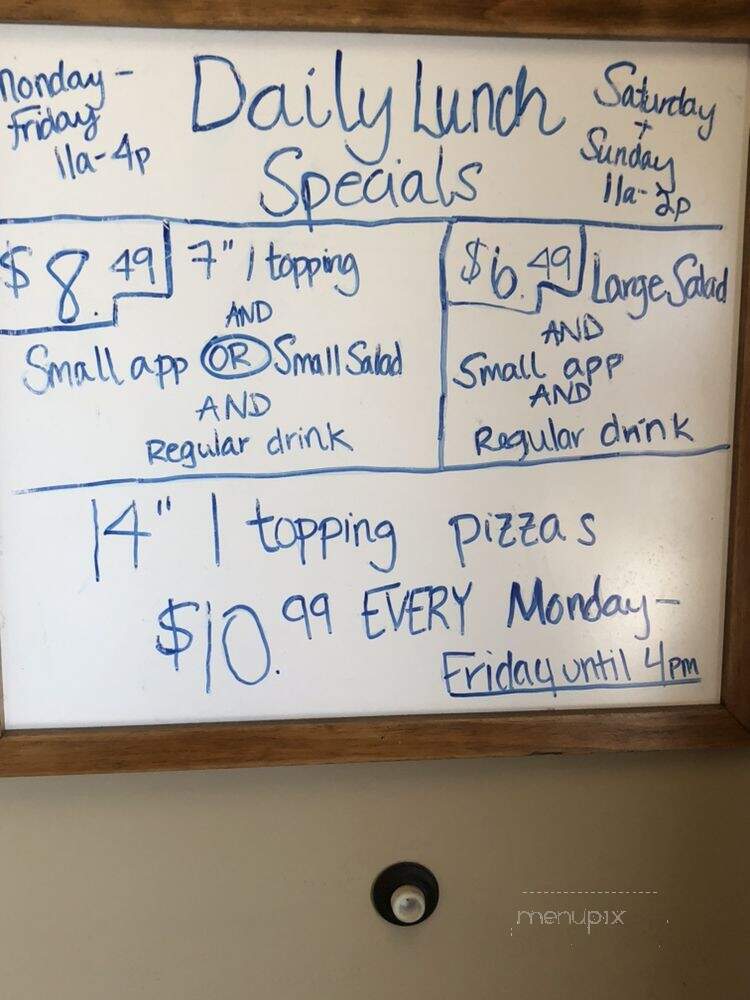 Monday -
Friday
11a-4p
Daily Lunch
Specials
Saturday
+
Sunday
11a-2p
$8.49
7" 1 topping
AND
Small app OR Small Salad
AND
Regular drink
$6.49
Large Salad
AND
Small app
AND
Regular drink
14" 1 topping pizzas
$10.99 EVERY Monday-
Friday until 4pm
menupix